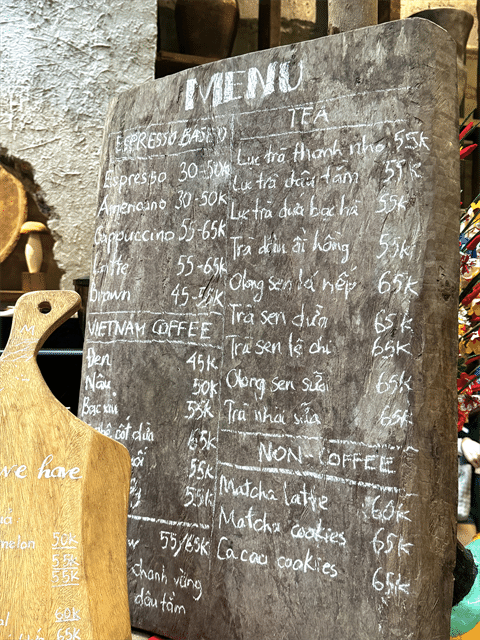 MENU
ESPRESSO BASED
Espresso 30-50k
Americano 30-50k
Cappuccino 55-65k
Latte 55-65k
Brown 45-55k
VIETNAM COFFEE
Đen 45k
Nâu 50k
Bạc xỉu 55k
cốt dừa 65k
55k
55k
55/65k
chanh vừng
dâu tằm
TEA
Lục trà thanh nho 55k
Lục trà dâu tằm 55k
Lục trà dưa bạc hà 55k
Trà dâu ổi hồng 55k
Olong sen lá nếp 65k
Trà sen dừa 65k
Trà sen lệ chi 65k
Olong sen sữa 65k
Trà nhài sữa 65k
NON-COFFEE
Matcha latte 60k
Matcha cookies 65k
Cacao cookies 65k
we have
50k
55k
55k
60k
65k